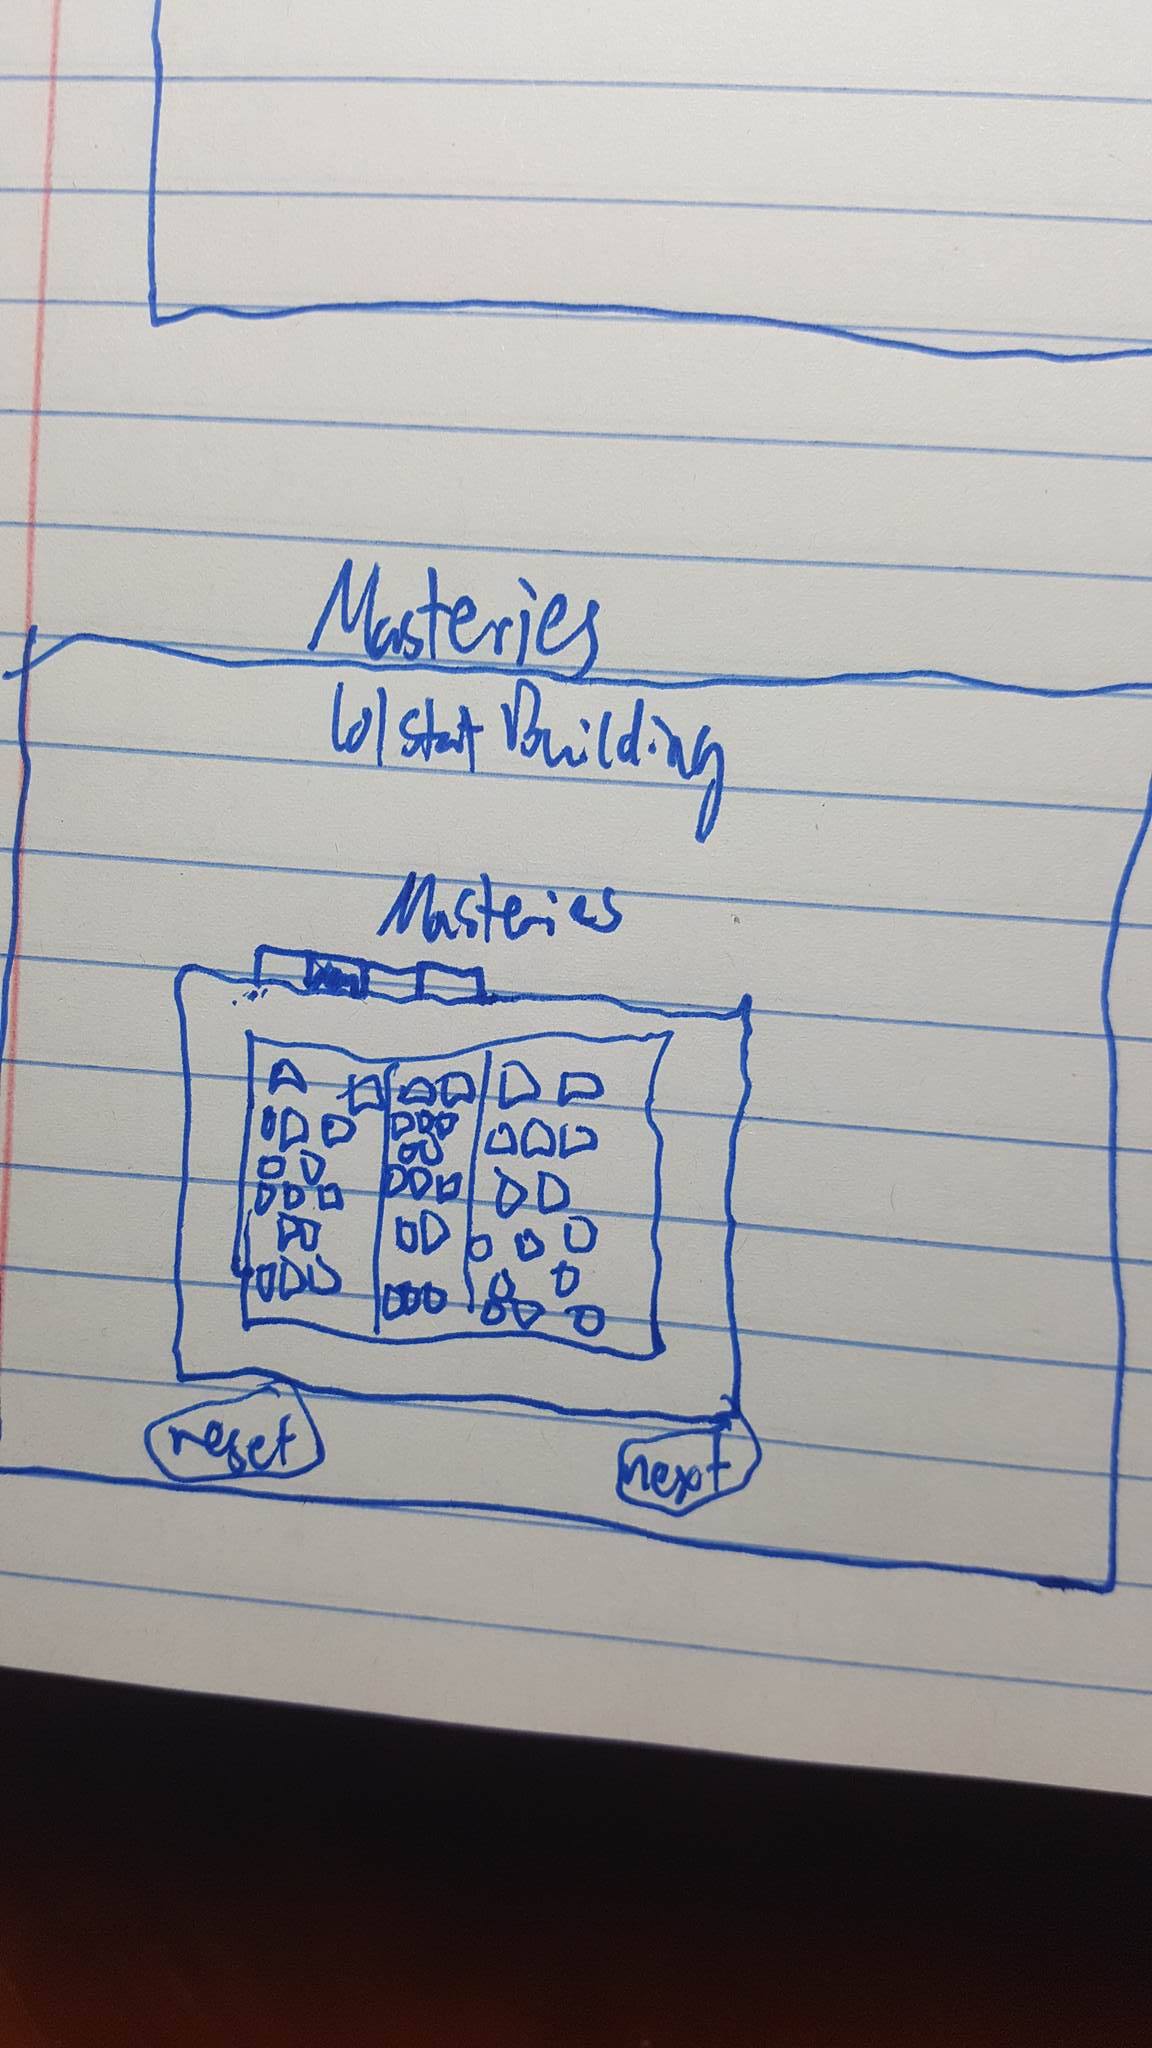 Masteries
lol Start Building
Masteries
reset
next